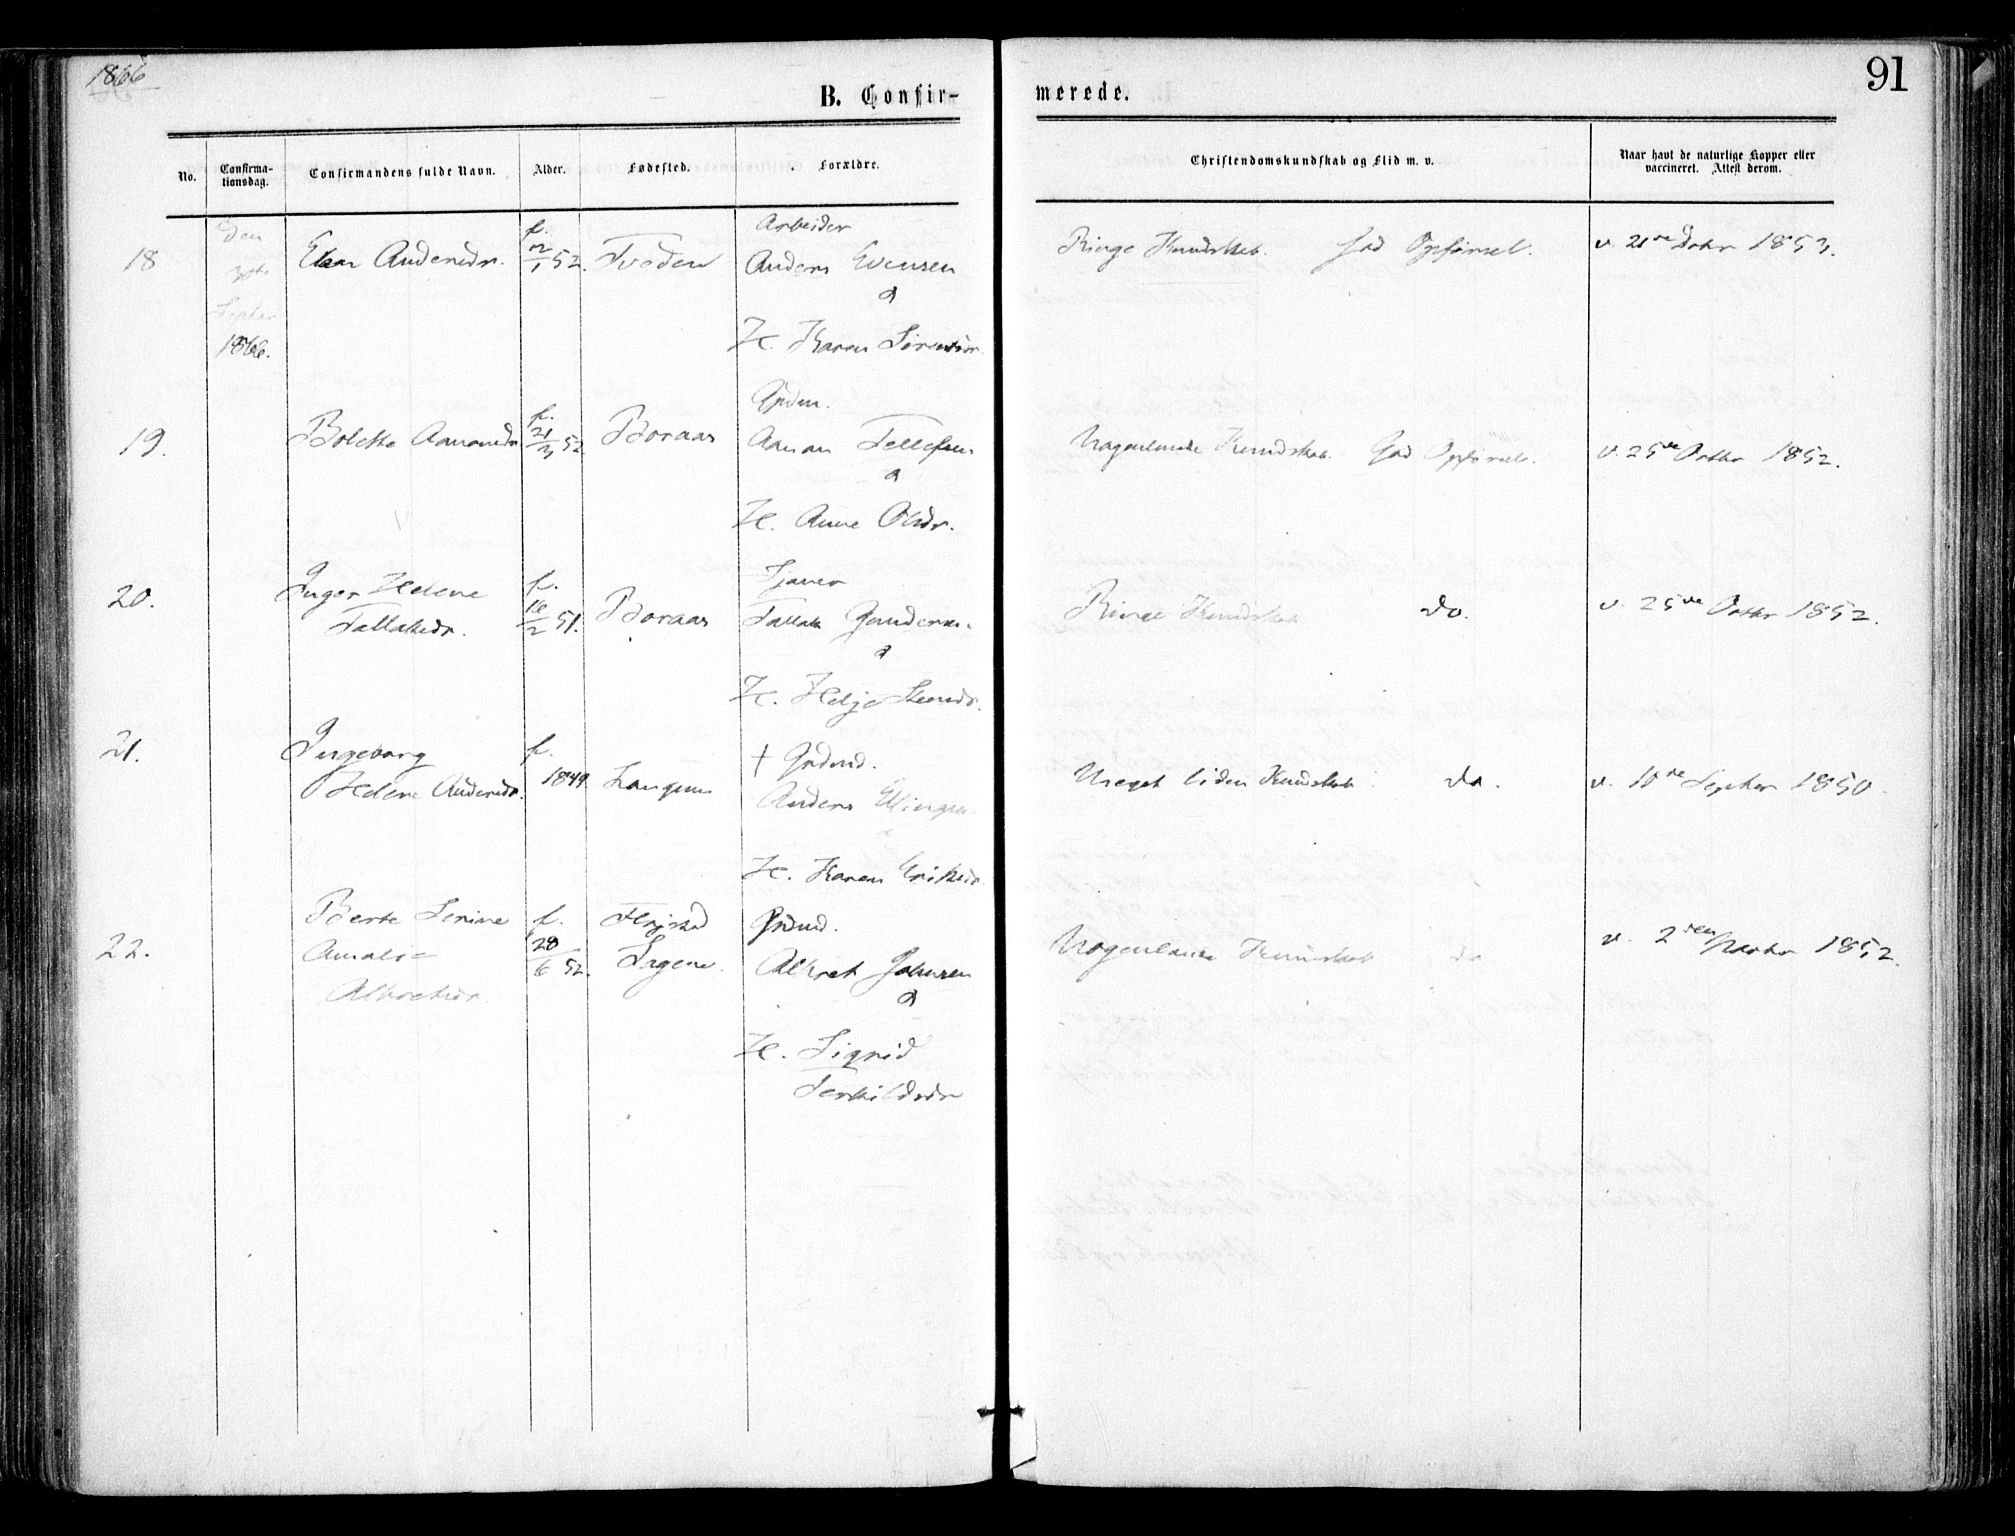 1866
91
B. Confir-
merede.
No.
Confirma-
tionsdag.
Confirmandens fulde Navn.
Alder.
Fødested.
Forældre.
Christendomskundskab og Flid m. v.
Naar havt de naturlige Kopper eller
vaccineret. Attest derom.
18
Den
Septbr
1866.
Andersdr.
f.
52.
Tveden
Arbeider
Anders Evensen
&
H. Karen
Ringe Kundskab. God Opførsel.
v. 21de 1853.
19.
Bolette Aanonsdr
f.
21/3 52
Boraas
Grdm.
Aanon Tellefsen
&
H. Anne Olsdr.
Nogenlunde Kundskab. God Opførsel.
v. 25de Octbr 1852.
20.
Inger Helene
Tallaksdr.
f.
16/2 51.
Boraas
Tjener
Tallak Gunders.
&
H. Helje
Ringe Kundskab
do.
v. 25de Octbr 1852.
21.
Ingeborg
Helene Andersdr.
f.
1849.
Langum
† Grdmd.
Anders Ellingsen
H. Karen Eriksdr.
Meget liden Kundskab
do.
v. 10de Septbr 1850.
22.
Berte Serine
Amalie
Albretsdr.
f.
28/6 52.
Sagene.
Grdmd.
Albret Johnsen
&
H. Sigrid
Terkildsdr
Nogenlunde Kundskab
do
v. 2den 1852.